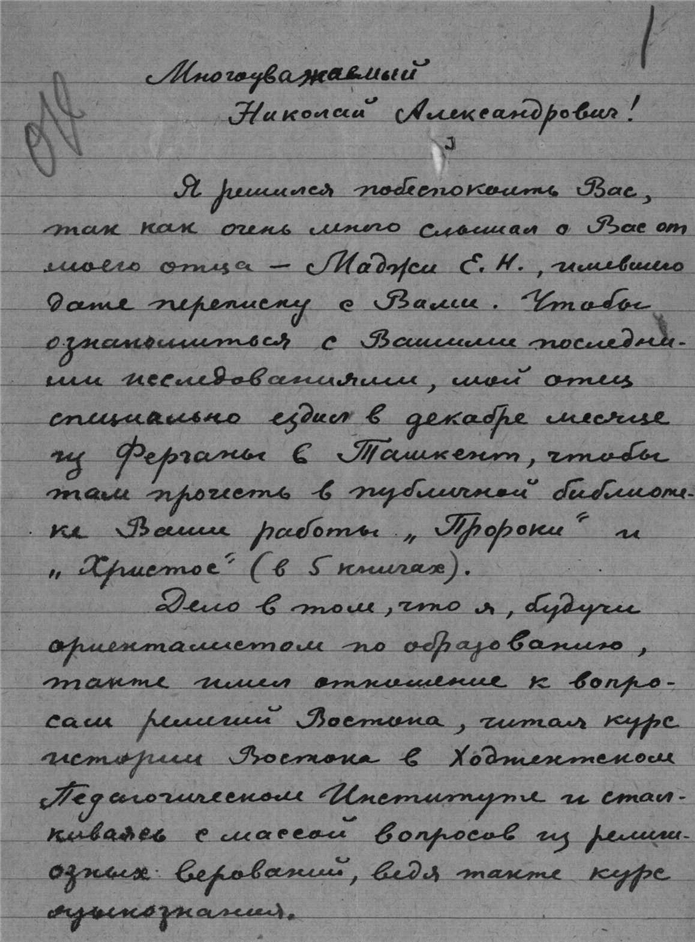 1
Многоуважаемый
Николай Александрович!
Я решился побеспокоить Вас,
так как очень много слышал о Вас от
моего отца — Маджи Е. Н., имевшего
даже переписку с Вами. Чтобы
ознакомиться с Вашими последни-
ми исследованиями, мой отец
специально ездил в декабре месяце
из Ферганы в Ташкент, чтобы
там прочесть в публичной библиоте-
ке Ваши работы „Пророки“ и
„Христос“ (в 5 книгах).
Дело в том, что я, будучи
ориенталистом по образованию,
также имел отношение к вопро-
сам религий Востока, читая курс
истории Востока в Ходжентском
Педагогическом Институте и стал-
киваясь с массой вопросов из религи-
озных верований, ведя также курс
языкознания.